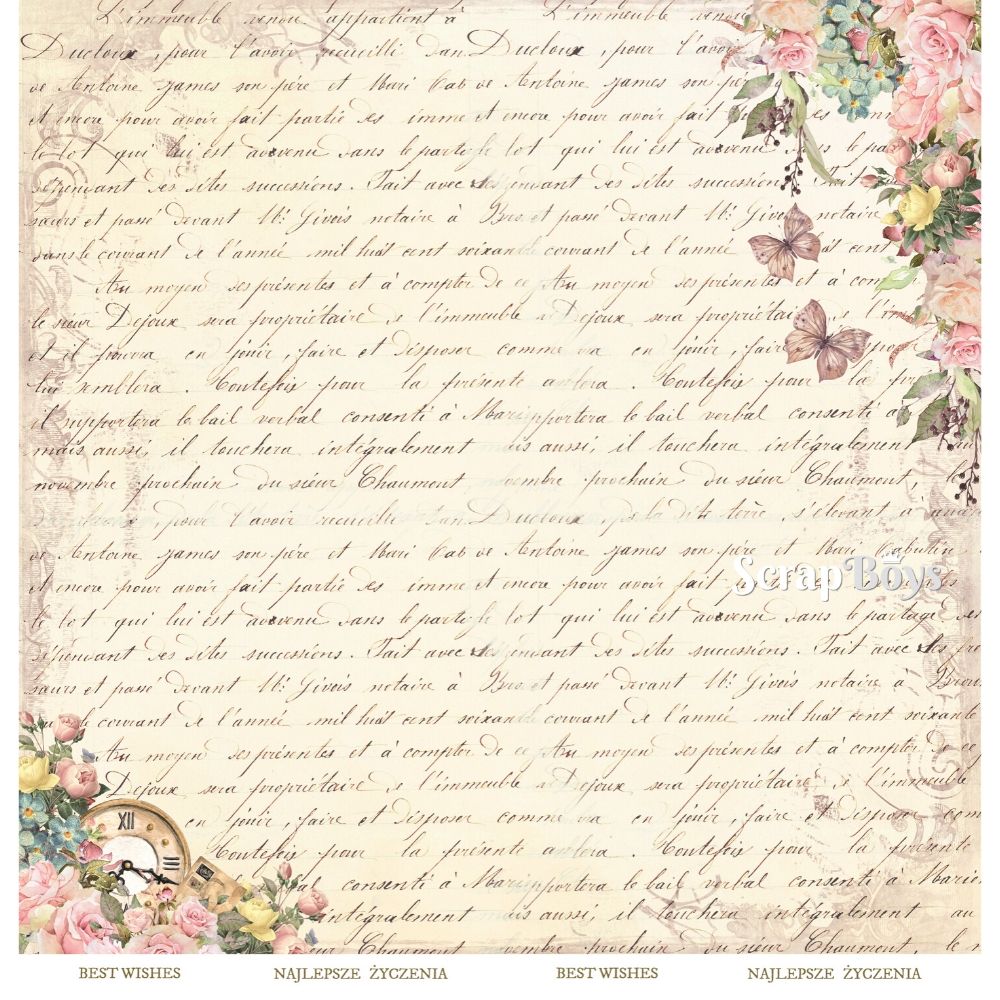 L'immeuble venou appartient à L'immeuble venou
Ducloux, pour l'avoir recueilli dan Ducloux, pour l'avoir
de Antoine James son père et Mari Cab de Antoine James son pé
et encore pour avoir fait partie des imme et encore pour avoir fait part des imm
le lot qui lui est advenu dans le partag le lot qui lui est advenu dans le pa
dépendant des dites successions. Fait avec les dépendant des dites successions. Fait
sœurs et passé devant Mr. Givois notaire à Bro et passé devant Mr. Givois notaire
dans le courant de l'année mil huit cent soixante courant de l'année huit cent
Au moyen des présentes et à compter de ce Au moyen des présentes et à comp
le sieur Dejoux sera propriétaire de l'immeuble Dejoux sera propriétaire de l'imm
et il pourra en jouir, faire et disposer comme va en jouir, faire dispose
lui semblera. Toutefois pour la présente amblera. Toutefois pour la pr
il supportera le bail verbal consenti à Mari pportera le bail verbal consenti à
mais aussi, il touchera intégralement mais aussi, il touchera intégralement au
novembre prochain du sieur Chaument, novembre prochain du sieur Chaument, le
Ducloux, pour l'avoir recueilli dan Ducloux, la dite terre, s'élevant à
de Antoine James son père et Mari Cab de Antoine James son père et Mari Cabutin
et encore pour avoir fait partie des imme et encore pour avoir fait partie des
ScrapBoys
le lot qui lui est advenu dans le partag le lot qui lui est advenu dans le partage des
dépendant des dites successions. Fait avec les dépendant des dites successions. Fait avec les pre
sœurs et passé devant Mr. Givois notaire à Bro et passé devant Mr. Givois notaire à Brou
le courant de l'année mil huit cent soixante courant de l'année mil huit cent soixante
Au moyen des présentes et à compter de ce Au moyen des présentes et à compter de ce
Dejoux sera propriétaire de l'immeuble Dejoux sera propriétaire de l'immeuble
XII en jouir, faire et disposer comme va en jouir, faire et disposer com
III Toutefois pour la présente amblera. Toutefois pour la présente
le bail verbal consenti à Mari pportera le bail verbal consenti à Marie
intégralement mais aussi, il touchera intégralement au
Chaument novembre prochain du sieur Chaument, le
BEST WISHES NAJLEPSZE ŻYCZENIA BEST WISHES NAJLEPSZE ŻYCZENIA